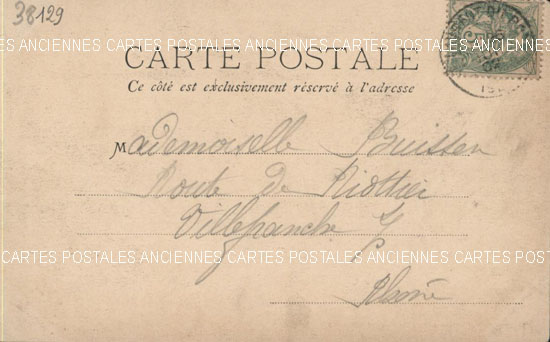 38129
CARTES POSTALES ANCIENNES CARTES POSTALES ANCIENNES CARTES POSTALES ANCIENNES
CARTE POSTALE
Ce côté est exclusivement réservé à l'adresse
Mademoiselle Buisson
Route de Riottier
Villefranche
CARTES POSTALES ANCIENNES CARTES POSTALES ANCIENNES CARTES POSTALES ANCIENNES
Rhône